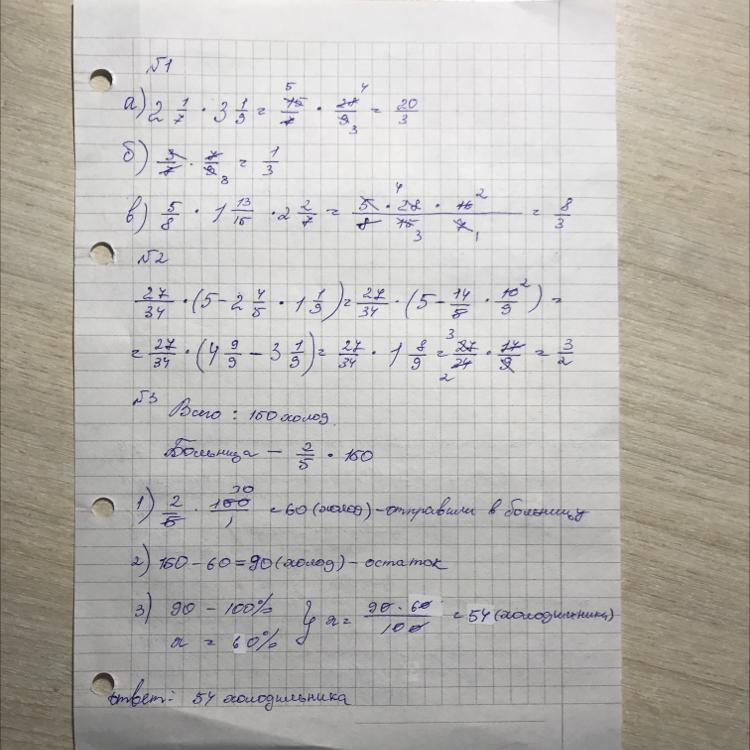 №1
а) 2 1/7 · 3 1/9 = 15/7 · 28/9 = 20/3
б) 3/7 · 7/9 = 1/3
в) 5/8 · 1 13/15 · 2 2/7 = 5 · 28 · 16 / 8 · 15 · 7 = 8/3
№2
27/34 · (5 - 2 4/5 · 1 1/9) = 27/34 · (5 - 14/5 · 10/9) =
= 27/34 · (4 9/9 - 3 1/9) = 27/34 · 1 8/9 = 27/34 · 17/9 = 3/2
№3
Всего : 150 холод.
Больница - 2/5 · 150
1) 2/5 · 150/1 = 60 (холод) - отправили в больницу
2) 150 - 60 = 90 (холод) - остаток
3) 90 - 100%
x = 60% } x = 90 · 60 / 100 = 54 (холодильника)
ответ: 54 холодильника